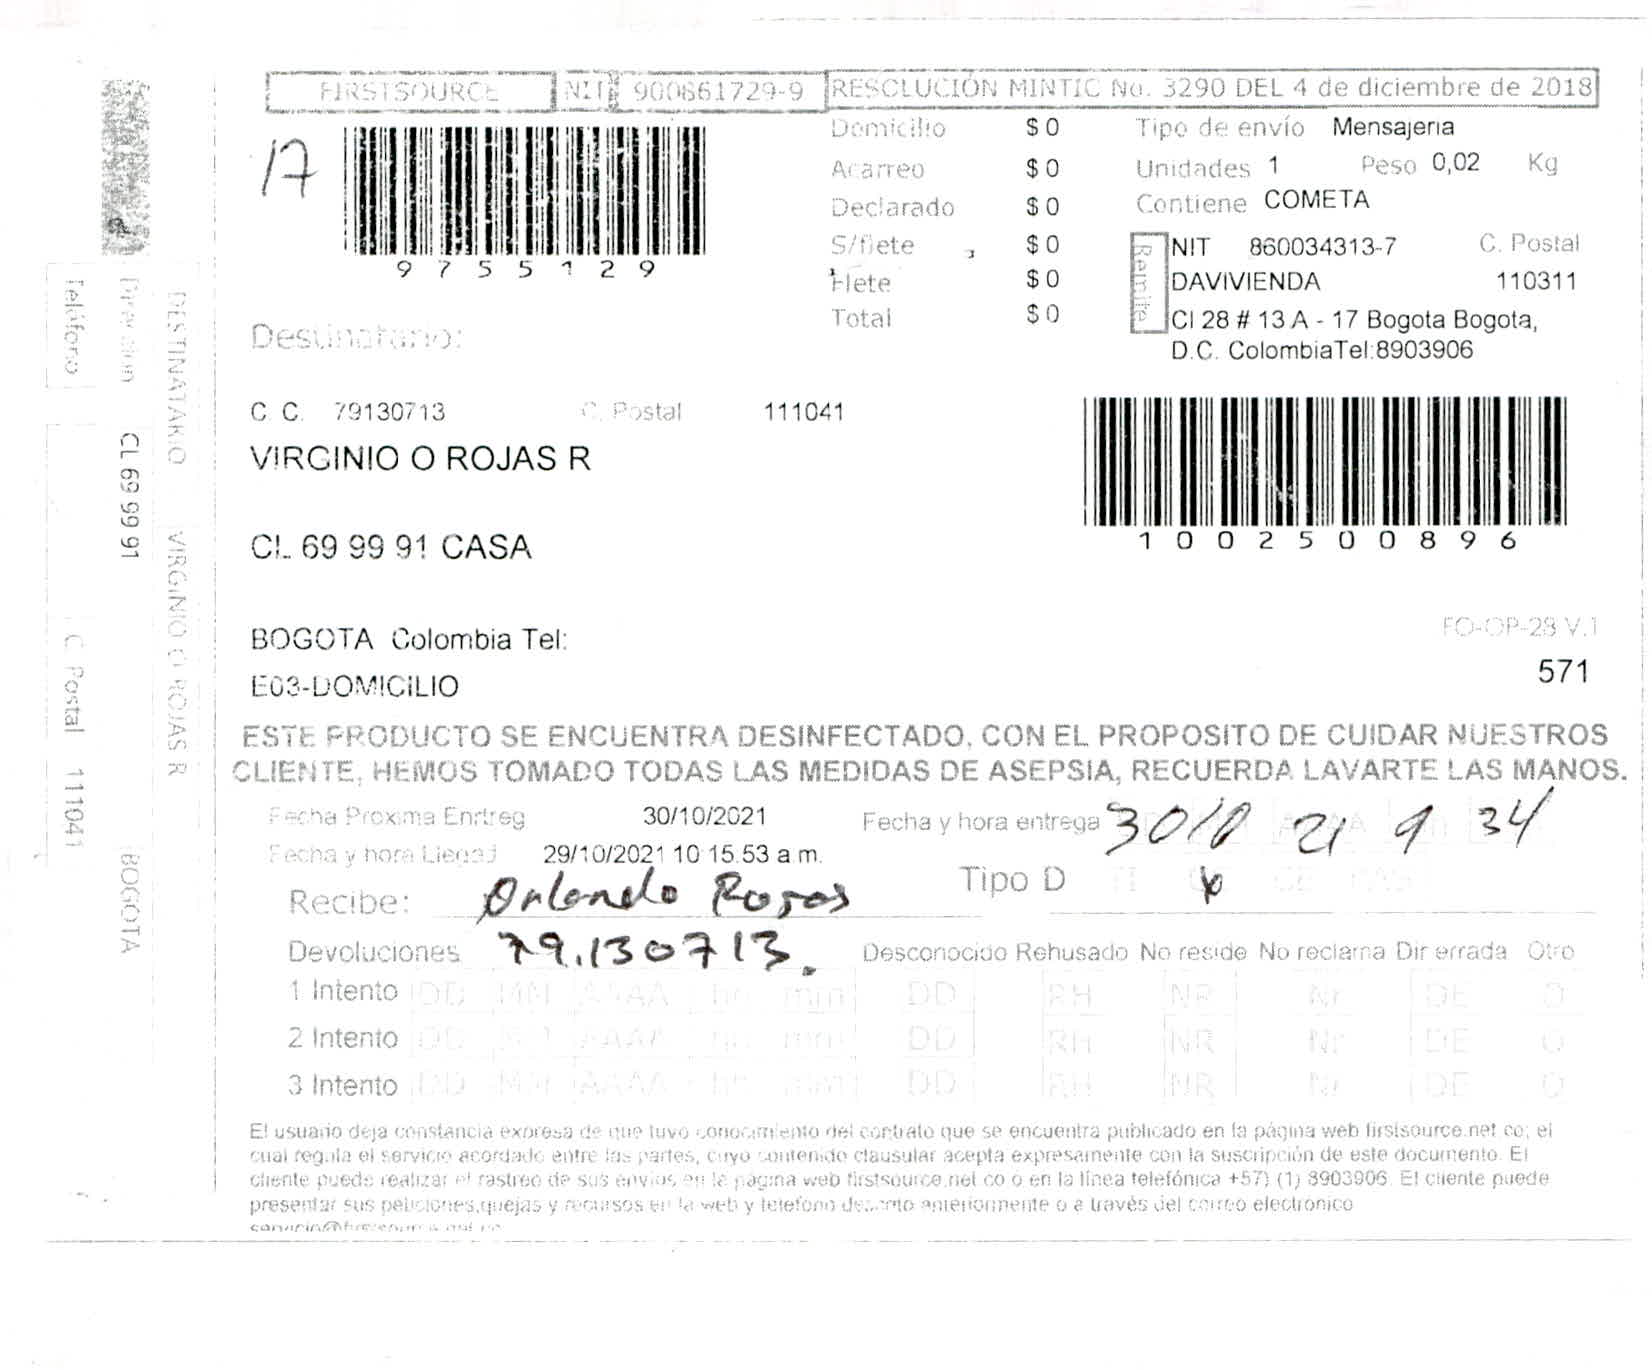 FIRSTSOURCE NIT 900861729-9 RESOLUCIÓN MINTIC No. 3290 DEL 4 de diciembre de 2018
17
9755129
Domicilio $ 0
Acarreo $ 0
Declarado $ 0
S/flete $ 0
Flete $ 0
Total $ 0
Tipo de envío Mensajeria
Unidades 1 Peso 0,02 Kg
Contiene COMETA
Remite
NIT 860034313-7 C. Postal
DAVIVIENDA 110311
Cl 28 # 13 A - 17 Bogota Bogota,
D.C. ColombiaTel:8903906
Destinatario:
C. C. 79130713 C. Postal 111041
VIRGINIO O ROJAS R
CL 69 99 91 CASA
10025000896
BOGOTA Colombia Tel:
E03-DOMICILIO
FO-OP-28 V.1
571
ESTE PRODUCTO SE ENCUENTRA DESINFECTADO, CON EL PROPOSITO DE CUIDAR NUESTROS
CLIENTE, HEMOS TOMADO TODAS LAS MEDIDAS DE ASEPSIA, RECUERDA LAVARTE LAS MANOS.
Fecha Proxima Enrtreg 30/10/2021 Fecha y hora entrega 30 10 21 9 34
Fecha y hora Llegad 29/10/2021 10:15:53 a.m.
Tipo D TI CE
Recibe: Orlando Rojas
Devoluciones 79.130713. Desconocido Rehusado No reside No reclama Dir errada Otro
1 Intento DD MM AAAA hh mm DD RH NR Nr DE O
2 Intento DD MM AAAA hh mm DD RH NR Nr DE O
3 Intento DD MM AAAA hh mm DD RH NR Nr DE O
El usuario deja constancia expresa de que tuvo conocimiento del contrato que se encuentra publicado en la página web firstsource.net.co; el
cual regula el servicio acordado entre las partes, cuyo contenido clausular acepta expresamente con la suscripción de este documento. El
cliente puede realizar el rastreo de sus envíos en la página web firstsource.net.co o en la línea telefónica +57) (1) 8903906. El cliente puede
presentar sus peticiones,quejas y recursos en la web y telefono descrito anteriormente o a través del correo electronico
DESTINATARIO VIRGINIO O ROJAS R
Direccion CL 69 99 91 BOGOTA
Teléfono C. Postal 111041